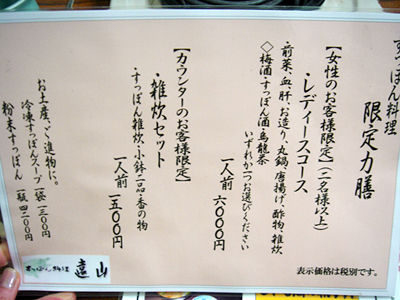 すっぽん料理
限定力膳
【女性のお客様限定】(二名様以上)
・レディースコース
前菜、血、肝、お造り、丸鍋、唐揚げ、酢物、雑炊
◇梅酒・すっぽん酒・烏龍茶
いずれか一つお選びください
一人前 六〇〇〇円
【カウンターのお客様限定】
・雑炊セット
・すっぽん雑炊、小鉢一品、香の物
一人前 一五〇〇円
お土産、ご進物に。
冷凍すっぽんスープ 一袋 一三〇〇円
粉末すっぽん 一瓶 四二〇〇円
すっぽん料理 遠山
表示価格は税別です。